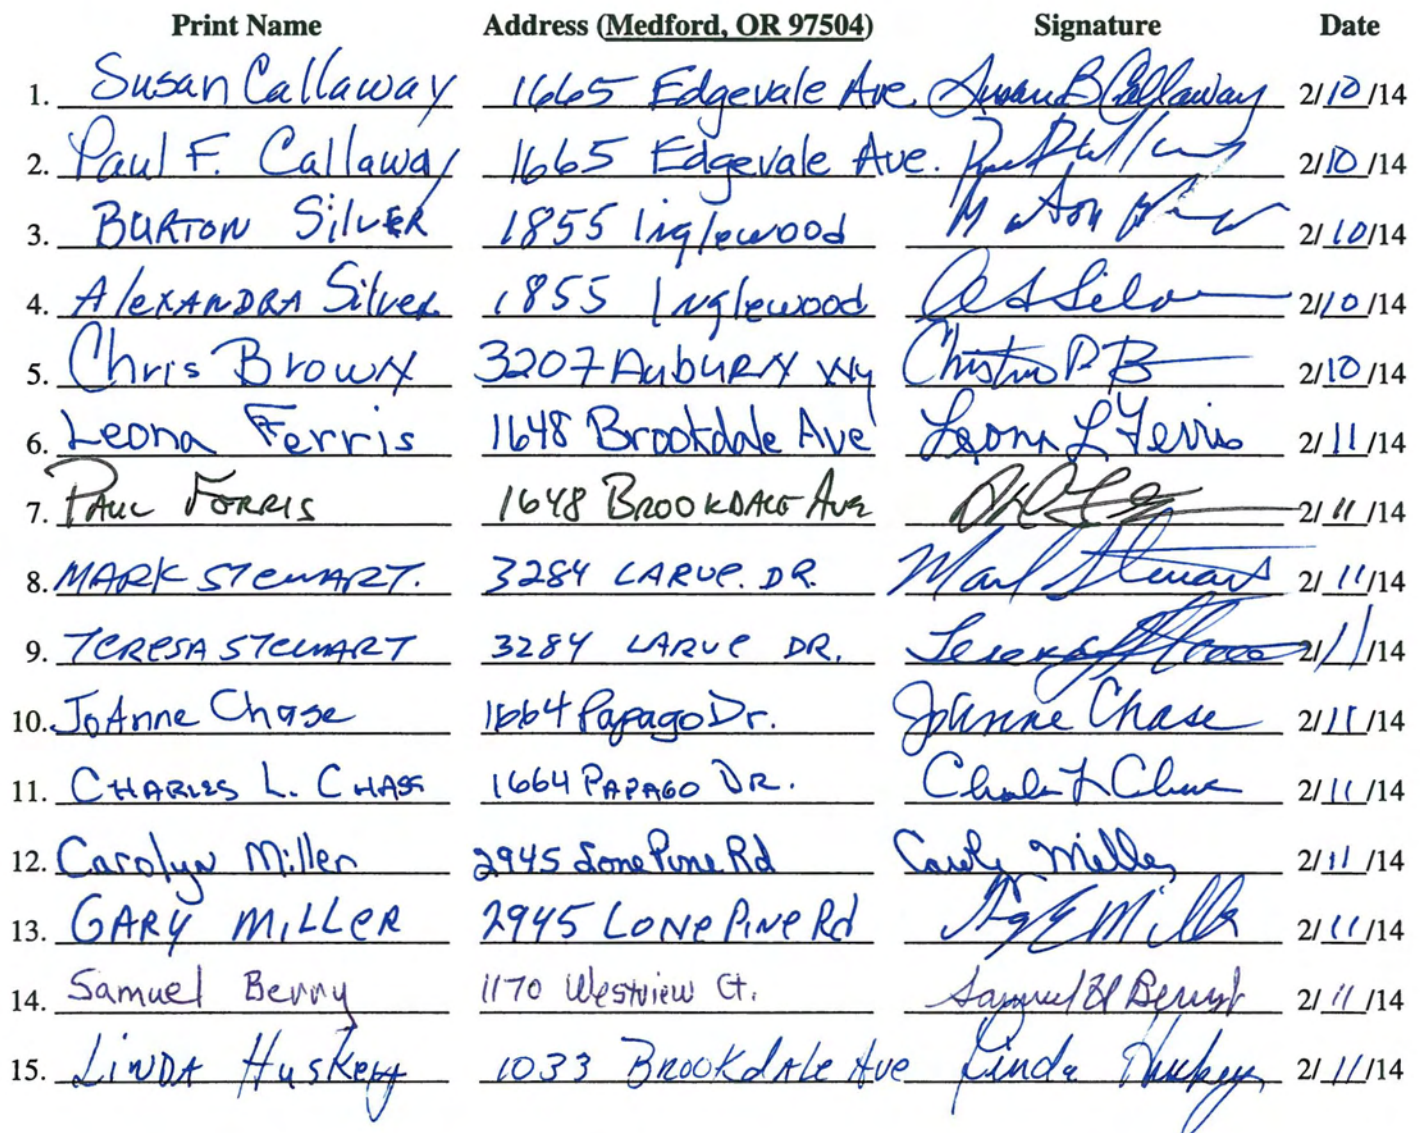 Print Name Address (Medford, OR 97504) Signature Date
1. Susan Callaway 1665 Edgevale Ave. Susan B Callaway 2/10/14
2. Paul F. Callaway 1665 Edgevale Ave. 2/10/14
3. BURTON SilvER 1855 Inglewood 2/10/14
4. AlEXANDRA Silver 1855 Inglewood 2/10/14
5. Chris Brown 3207 AubURN Wy 2/10/14
6. Leona Ferris 1648 Brookdale Ave Leona L Ferris 2/11/14
7. PAUL FERRIS 1648 BROOKDALE AVE 2/11/14
8. MARK STEWART. 3284 LARUE. DR. Mark Stewart 2/11/14
9. TERESA STEWART 3284 LARUE DR. Teresa 2/11/14
10. JoAnne Chase 1664 Papago Dr. JoAnne Chase 2/11/14
11. CHARLES L. CHASE 1664 PAPAGO DR. Charles L Chase 2/11/14
12. Carolyn Miller 2945 Lone Pine Rd Carolyn Miller 2/11/14
13. GARY MILLER 2945 LONE PINE Rd Gary E Miller 2/11/14
14. Samuel Berry 1170 Westview Ct. Samuel H Berry 2/11/14
15. LINDA Huskey 1033 BROOKdAle Ave Linda Huskey 2/11/14